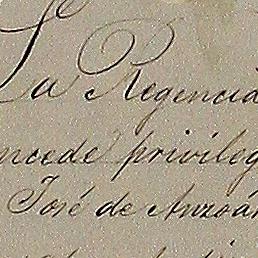 La Regencia
ncede privileg
José de Anzoá